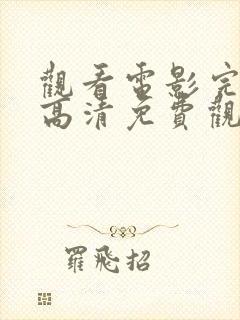 觀看電影完
高清免費觀
羅飛招